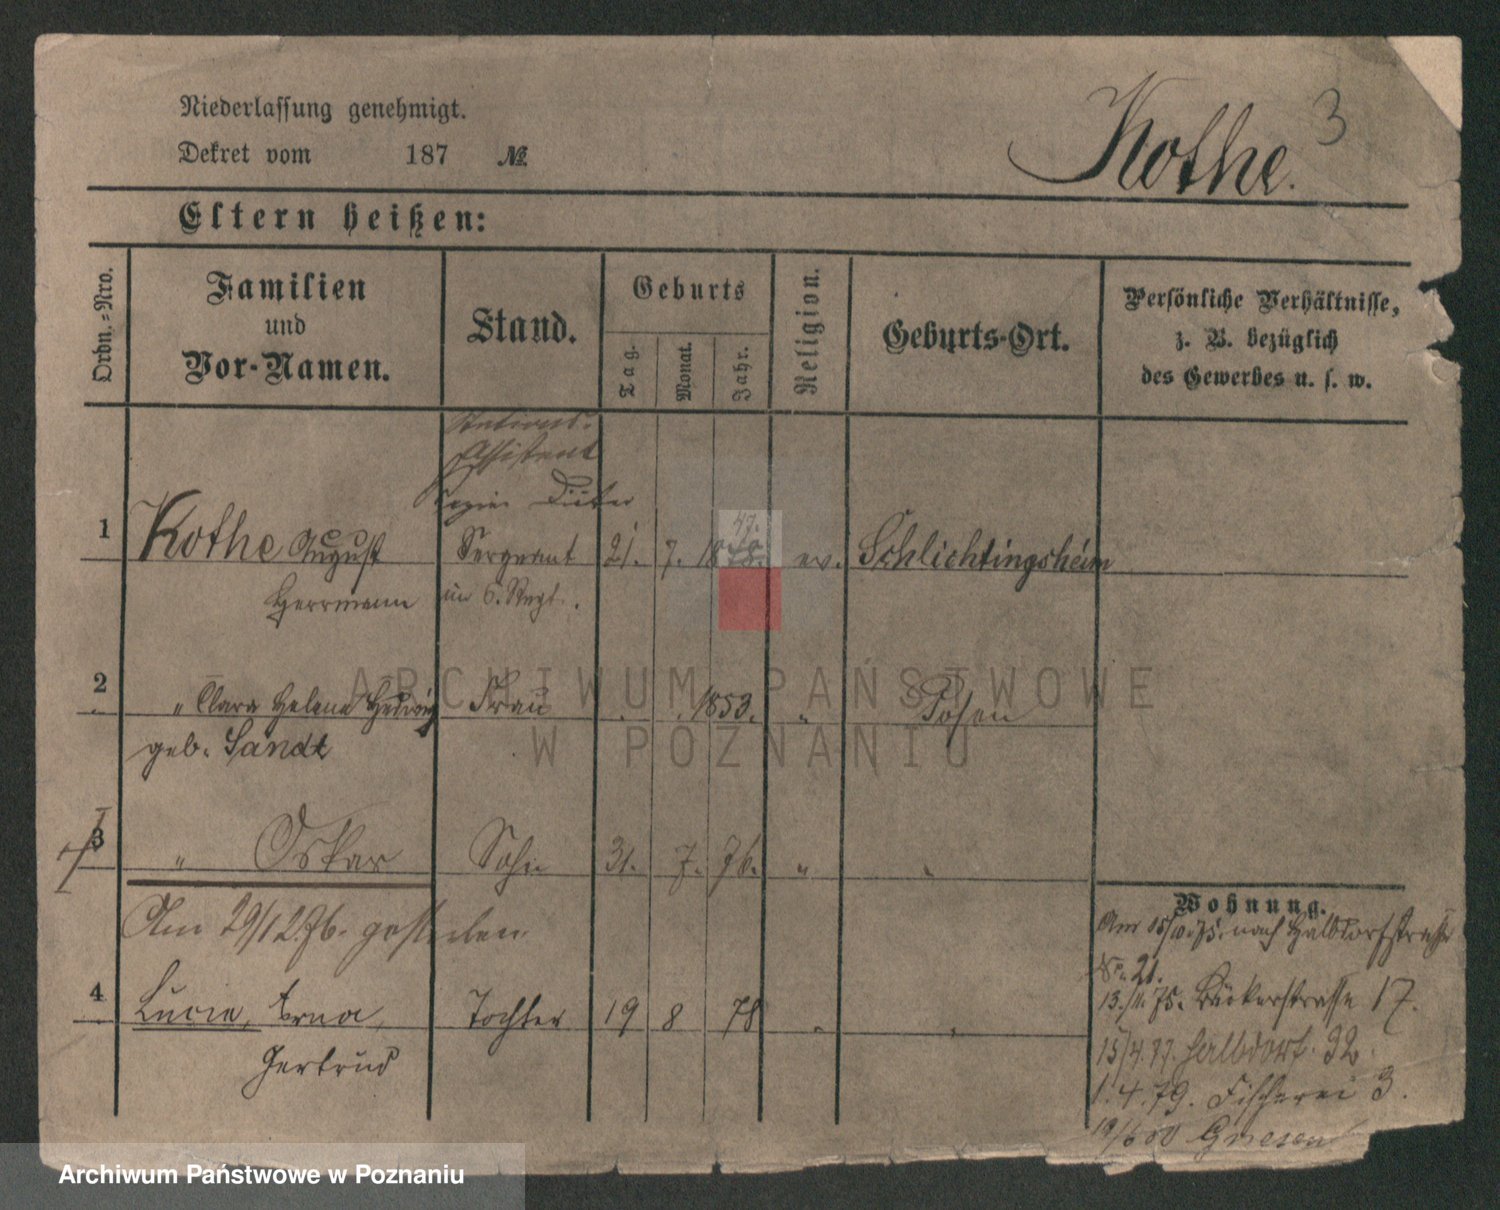 Niederlassung genehmigt.
Dekret vom 187 №
Kothe. 3
Eltern heißen:
Ordn.-Nro.
Familien
und
Vor-Namen.
Stand.
Geburts
Tag.
Monat.
Jahr.
Religion.
Geburts-Ort.
Persönliche Verhältnisse,
z. B. bezüglich
des Gewerbes u. s. w.
Assistent
1 Kothe August Sergeant 21. 7. 1848. ev. Schlichtingsheim
47.
Herrmann im 6. Regt.
2 " Clara Helene Hedwig Frau 1853. " Posen
geb. Sandt
3 " Oskar Sohn 31. 7. 76. " "
Am 29/12.76. gestorben.
4 Lucie, Erna, Tochter 19 8 78 " "
Gertrud
Wohnung.
Am 15/10.75. nach Halbdorfstrasse
No. 21.
13./11.75. Bäckerstrasse 17.
15/4.77. Halbdorf. 32.
1.4.79. Fischerei 3.
19/6 80 Gnesen
ARCHIWUM PAŃSTWOWE
W POZNANIU
Archiwum Państwowe w Poznaniu